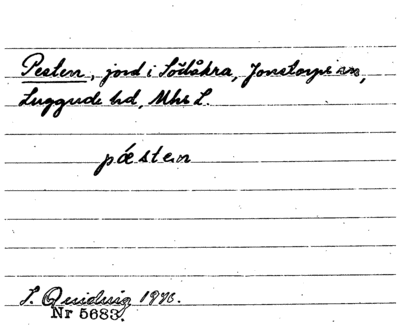 Pesten, jord i Södåkra, Jonstorps sn,
Luggude hd, Mhs L.
pǽsten
S. Quiding 1976.
Nr 5683.